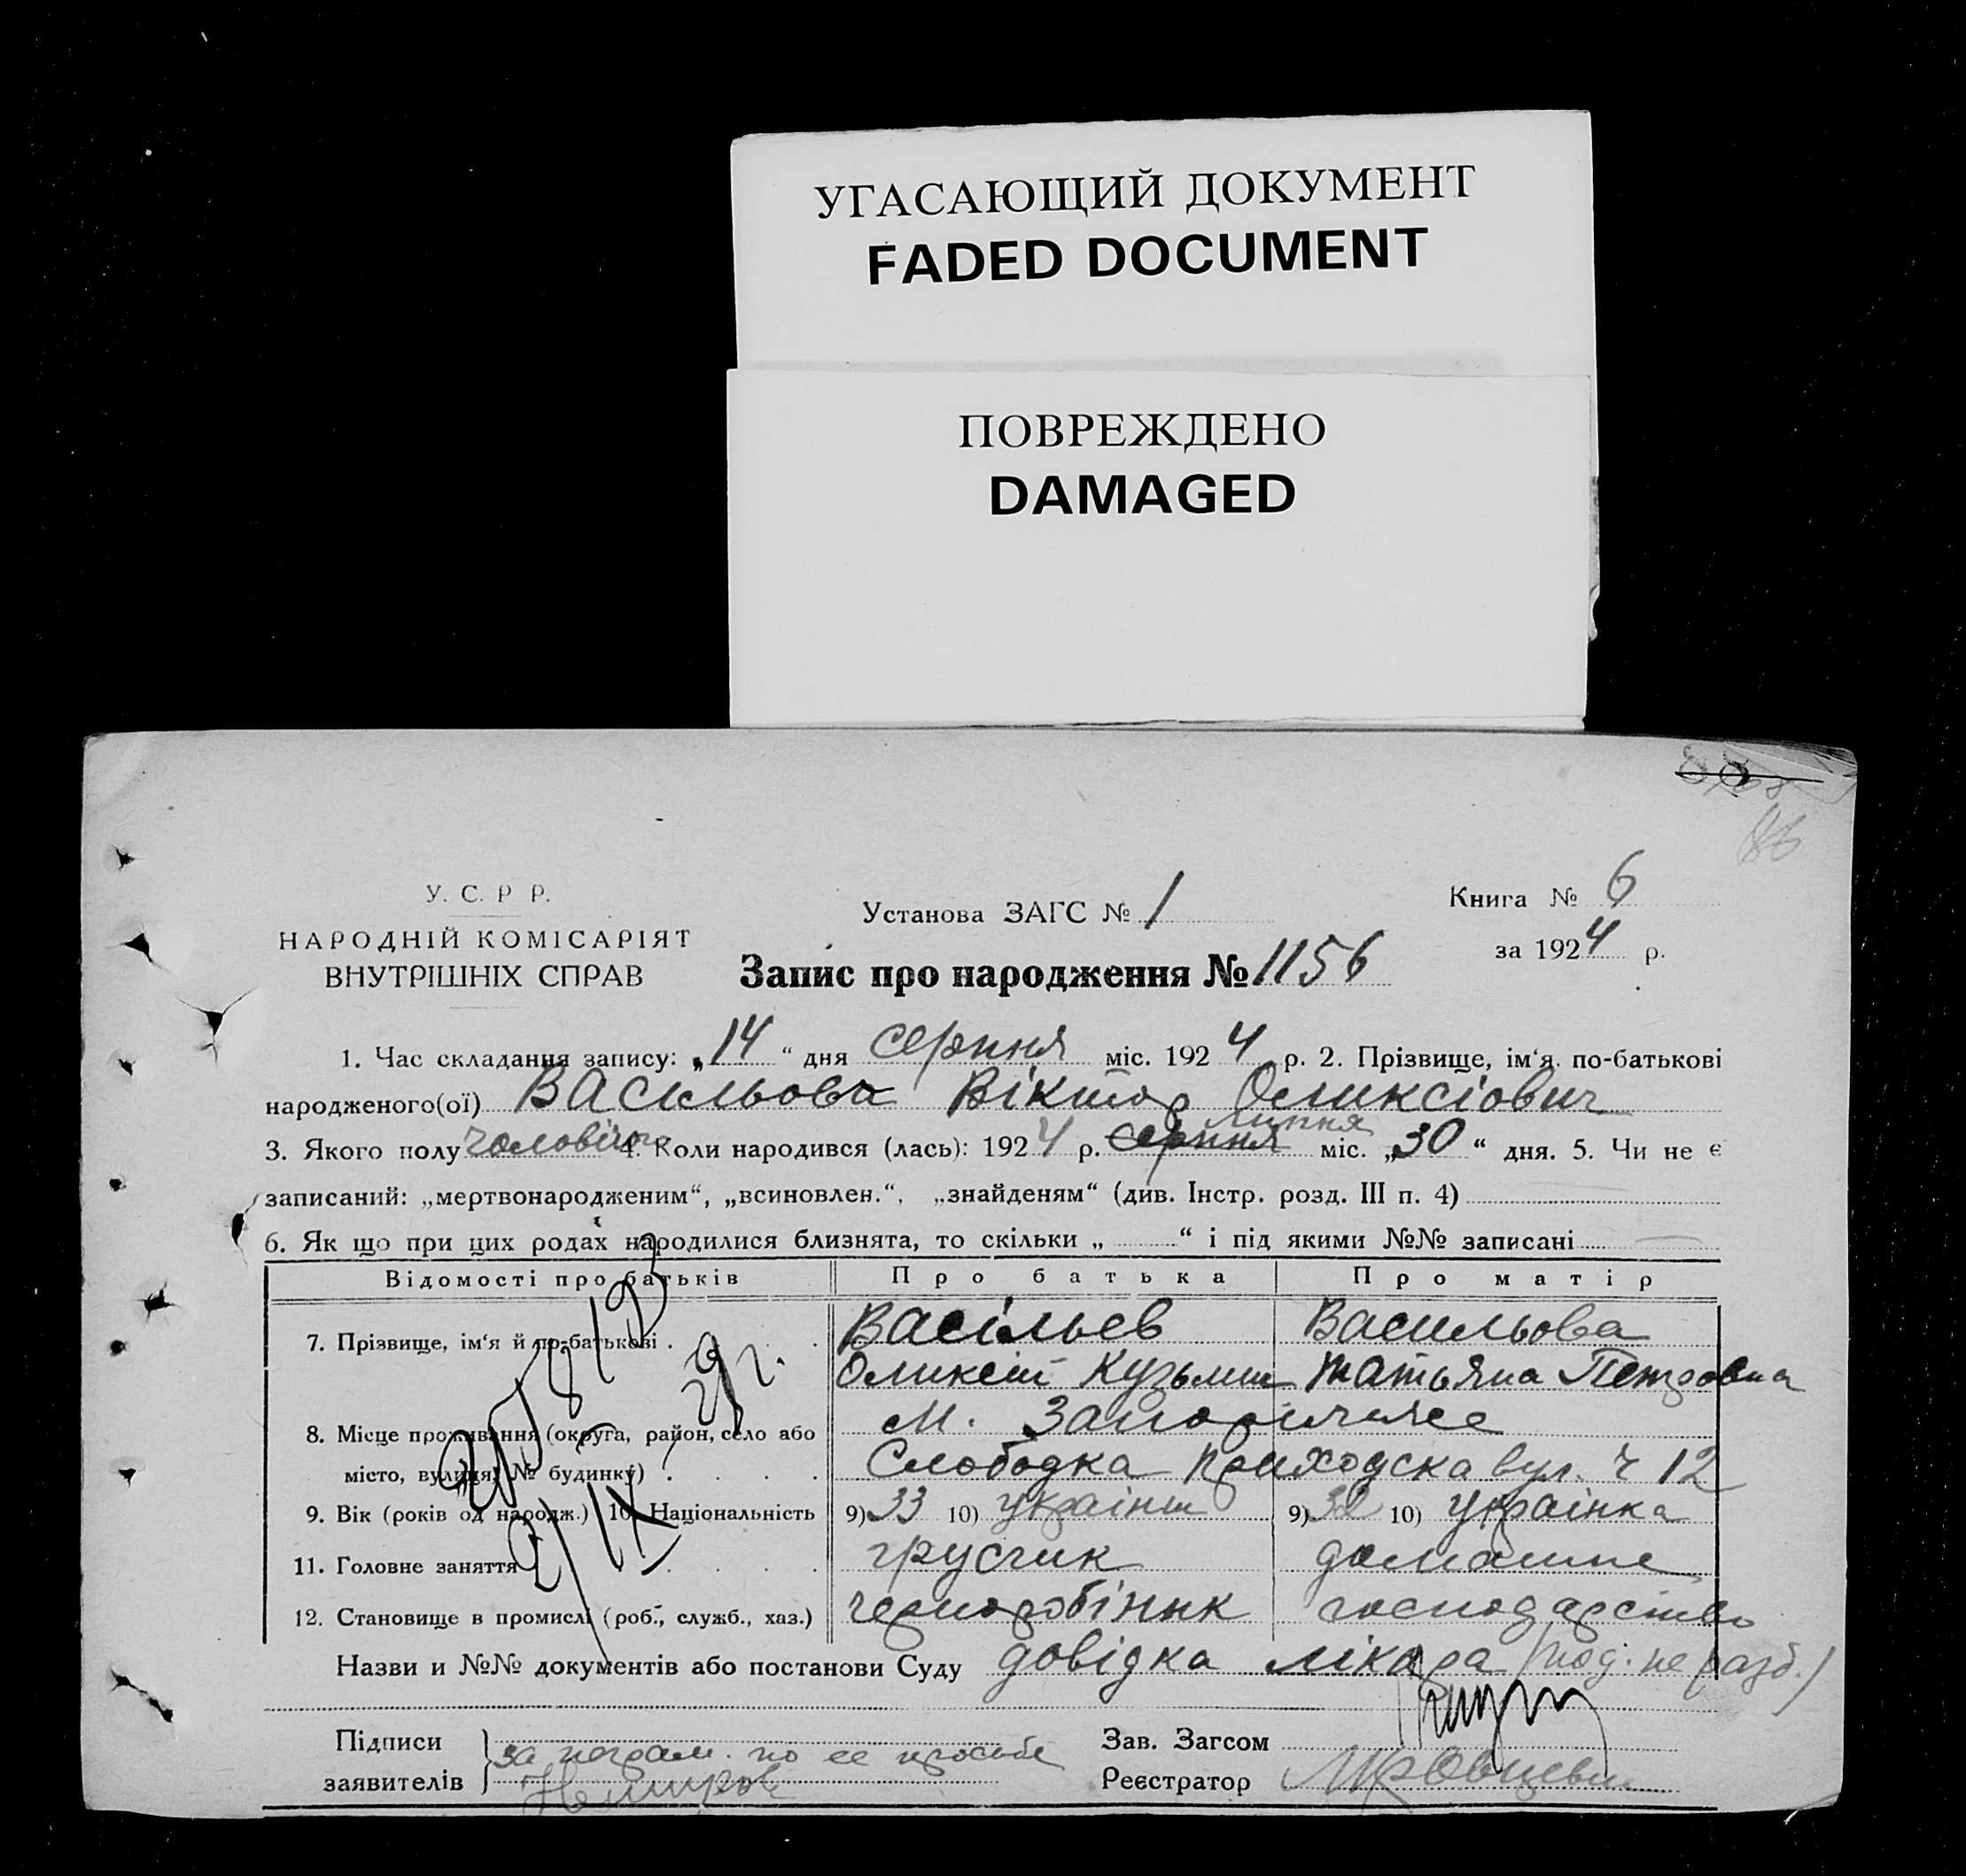 УГАСАЮЩИЙ ДОКУМЕНТ
FADED DOCUMENT
ПОВРЕЖДЕНО
DAMAGED
86
У. С. Р Р.
НАРОДНІЙ КОМІСАРІЯТ
ВНУТРІШНІХ СПРАВ
Установа ЗАГС № 1
Книга № 6
за 1924 р.
Запис про народження № 1156
1. Час складання запису: „14“ дня серпня міс. 1924 р. 2. Прізвище, ім‘я по-батькові
народженого(ої) Васильова Віктор Оликсіович
липня
3. Якого полу чоловіч 4. Коли народився (лась): 1924 р. серпня міс. „30“ дня. 5. Чи не є
записаний: „мертвонародженим“, „всиновлен.“, „знайденям“ (див. Інстр. розд. III п. 4)
6. Як що при цих родах народилися близнята, то скільки „ “ і під якими №№ записані
Відомості про батьків Про батька Про матір
7. Прізвище, ім‘я й по-батькові . . Васільев Васильова
Оликсій Кузьмич Татьяна Петровна
8. Місце проживання (округа, район, село або М. Запоріжжє
місто, вулиця, № будинку) . . . . Слободка Приходска вул. ч 12
9. Вік (років од народж.) 10. Національність 9) 33 10) українец 9) 32 10) українка
11. Головне заняття . . . . грусчик домашне
12. Становище в промислі (роб., служб., хаз.) чернробіник господарство
Назви и №№ документів або постанови Суду довідка лікара /под. не разб./
Підписи
заявителів
за неграм. по ее просьбе
Зав. Загсом
Реєстратор